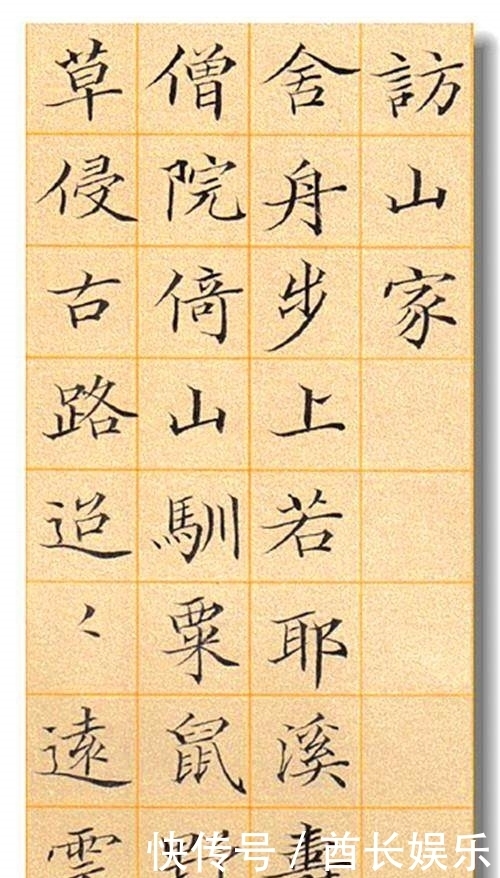 訪山家
舍舟步上若耶溪
僧院倚山馴粟鼠
草侵古路迢〻遠
快传号 / 酋长娱乐